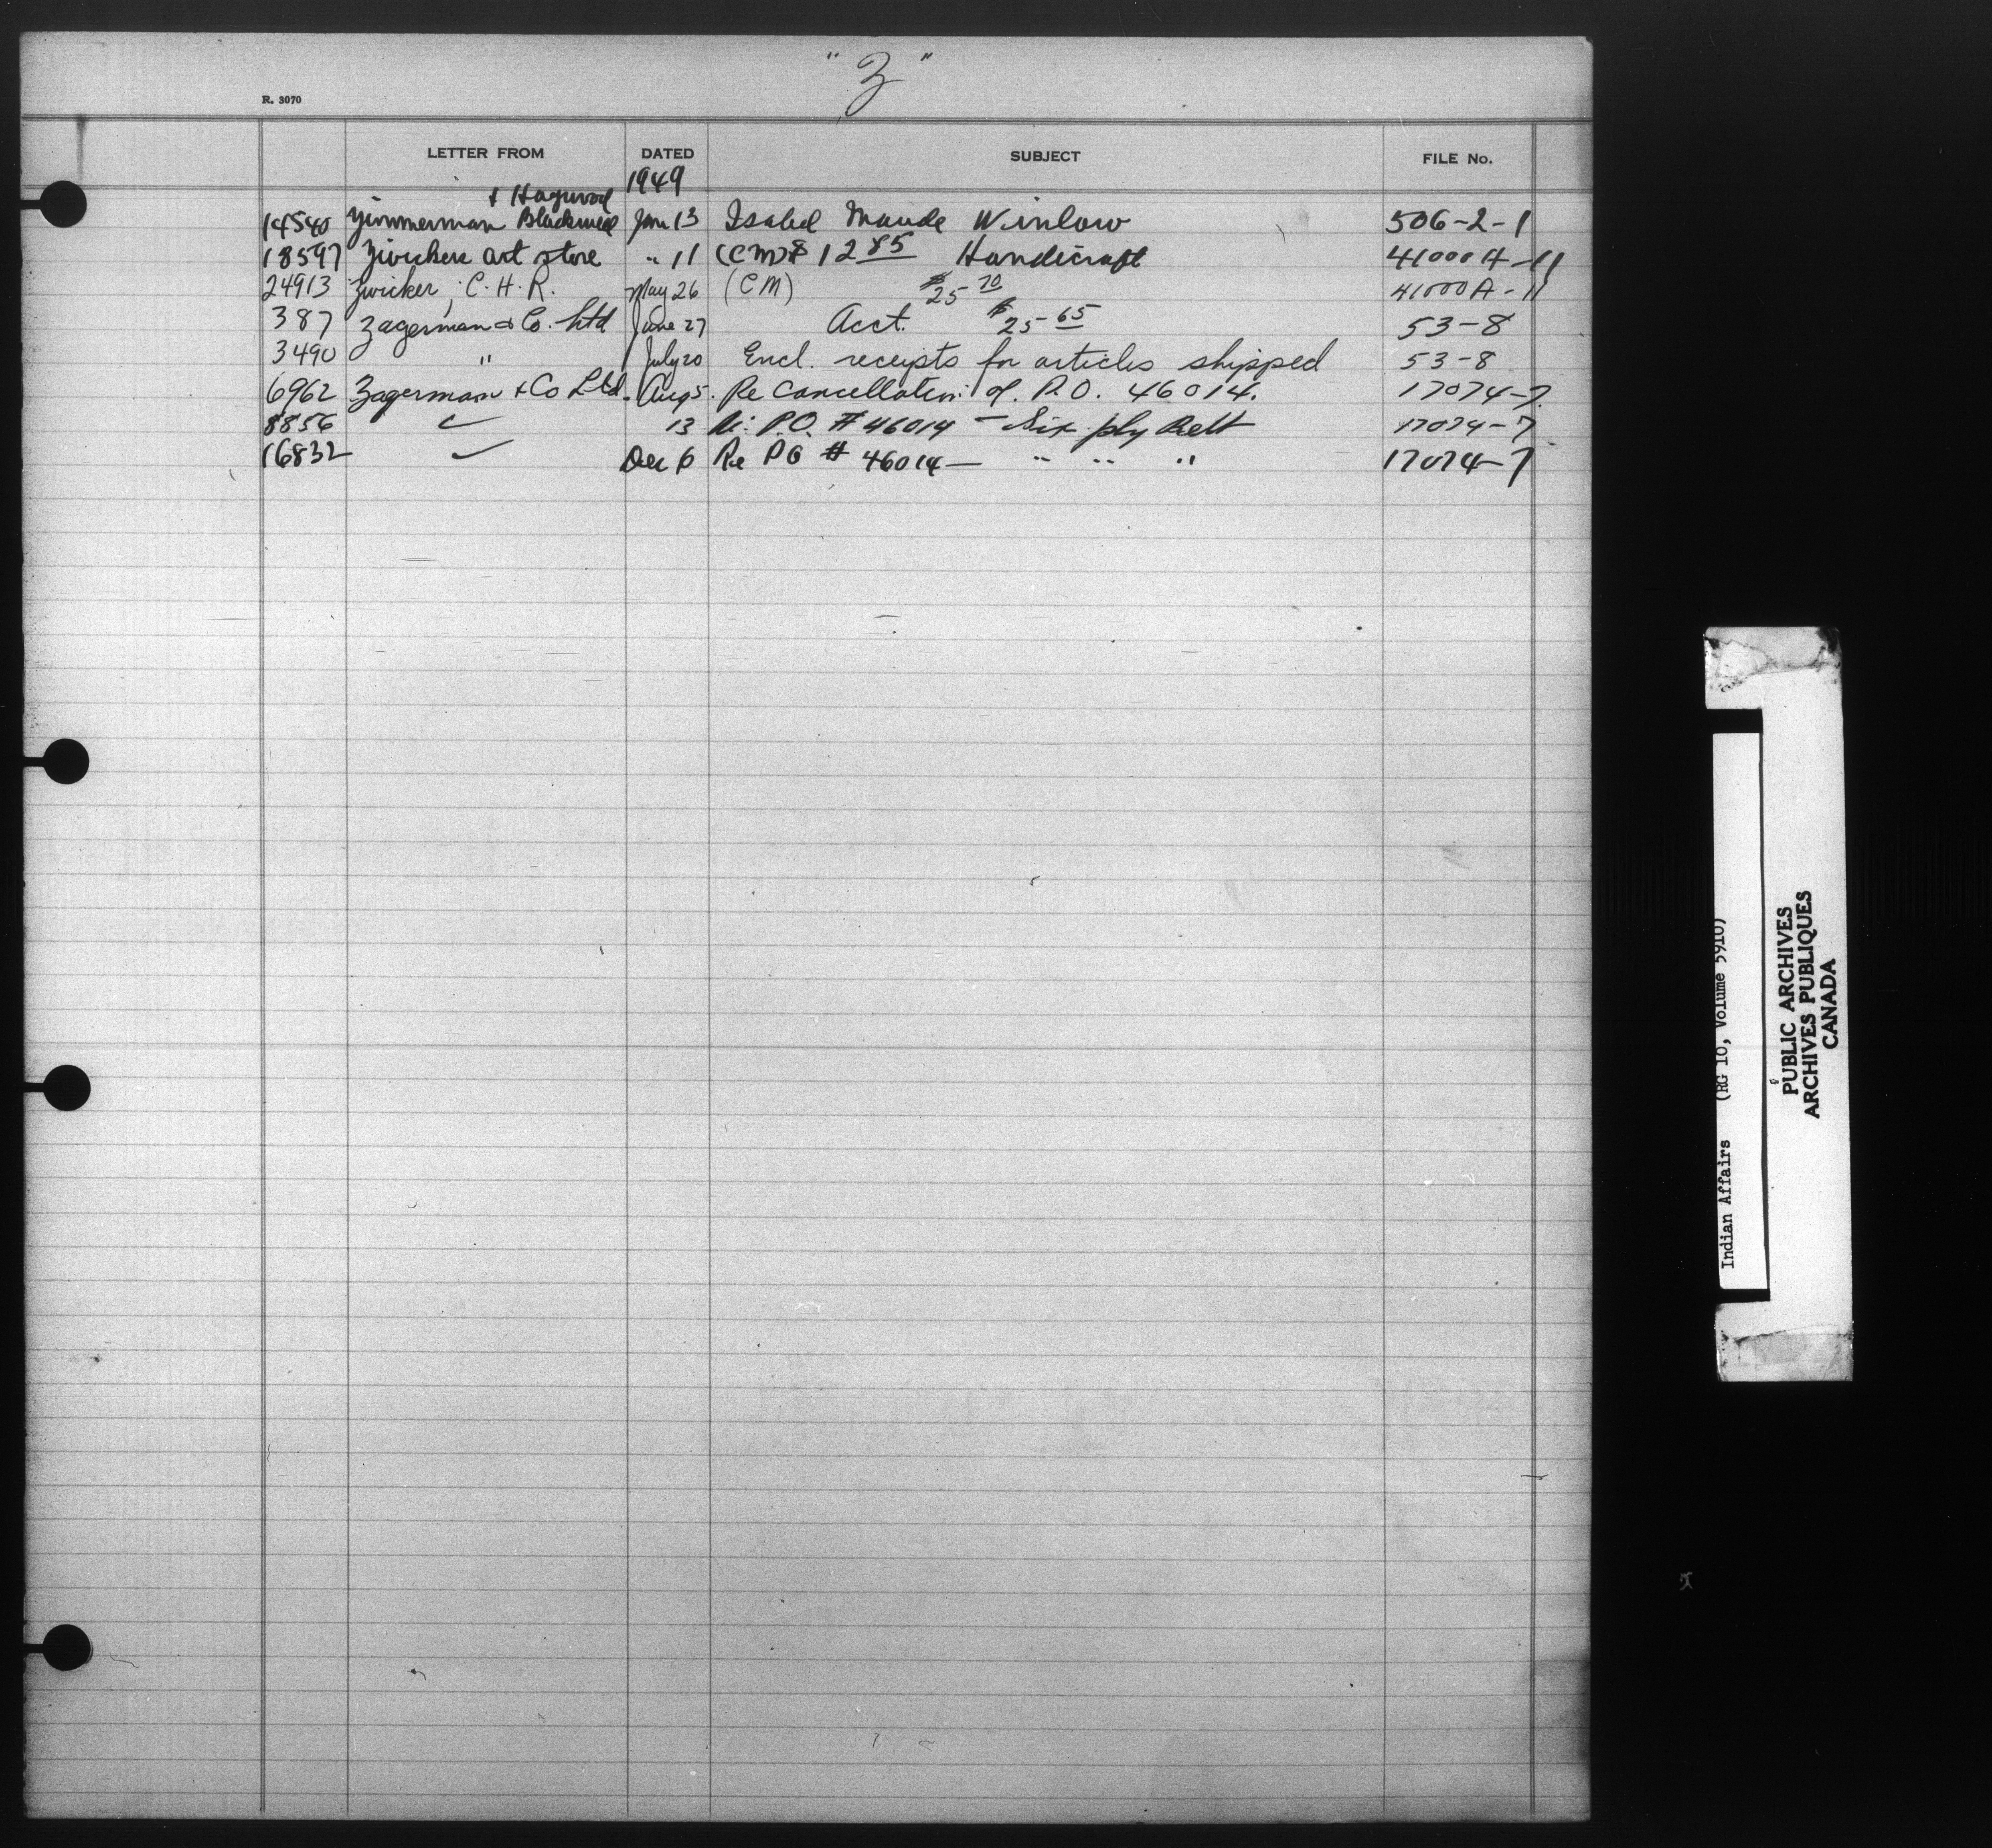 " Z "
R. 3070
LETTER FROM DATED SUBJECT FILE No.
1949
+ Haywood
14540 Zimmerman Blackwell Jan 13 Isabel Maude Winlow 506-2-1
18597 Zwickers art store " 11 (CM) $ 12 85 Handicraft 41000A-11
24913 Zwicker, C. H. R. May 26 (CM) $25 70 41000A-11
387 Zagerman & Co. Ltd June 27 Acct. $25 65 53-8
3490 " July 20 Encl. receipts for articles shipped 53-8
6962 Zagerman + Co Ltd. Aug 5. Re Cancellation of P.O. 46014. 17074-7
8856 13 P.O. # 46014 - Six ply Belt 17074-7
16832 Dec 6 Re PO # 46014 - " " " 17074-7
Indian Affairs (RG 10, Volume 5910)
PUBLIC ARCHIVES
ARCHIVES PUBLIQUES
CANADA